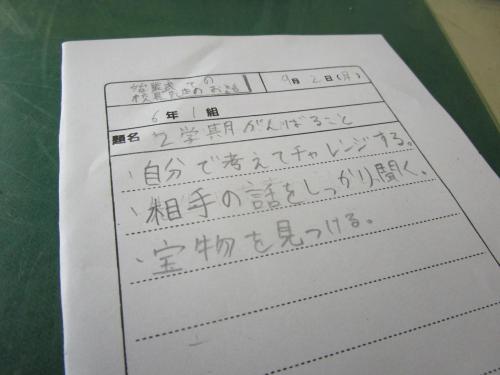 始業式での
校長先生のお話
9月2日(月)
6年1組
題名 2学期がんばること
・自分で考えてチャレンジする。
・相手の話をしっかり聞く。
・宝物を見つける。